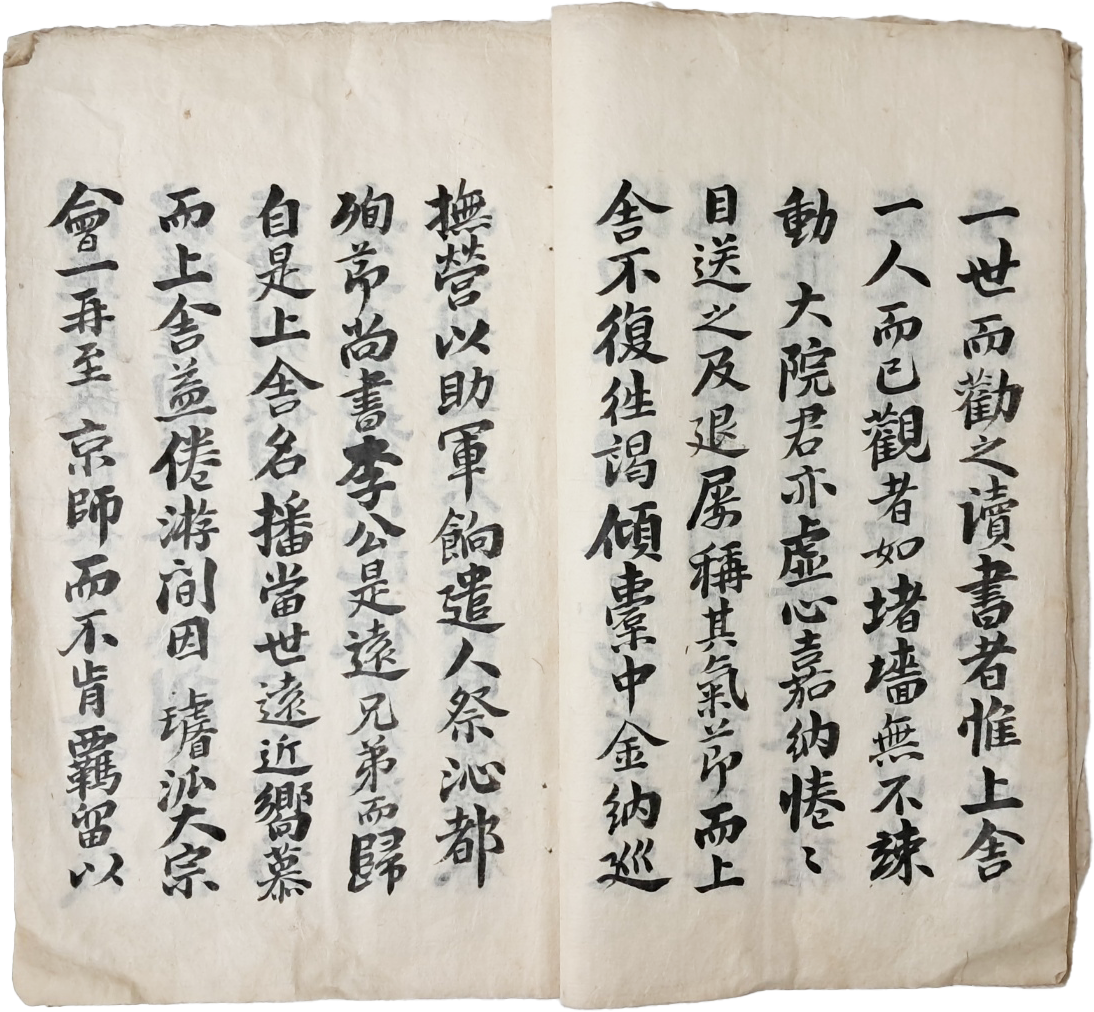 一世而勸之讀書者惟上舍
一人而已觀者如堵墻無不竦
動 大院君亦虛心嘉納惓〻
目送之及退屢稱其氣節而上
舍不復徃謁傾橐中金納巡
撫營以助軍餉遣人祭沁都
殉節尚書李公是遠兄弟而歸
自是上舍名播當世遠近嚮慕
而上舍益倦游間因 璿派大宗
會一再至 京師而不肯羈留以